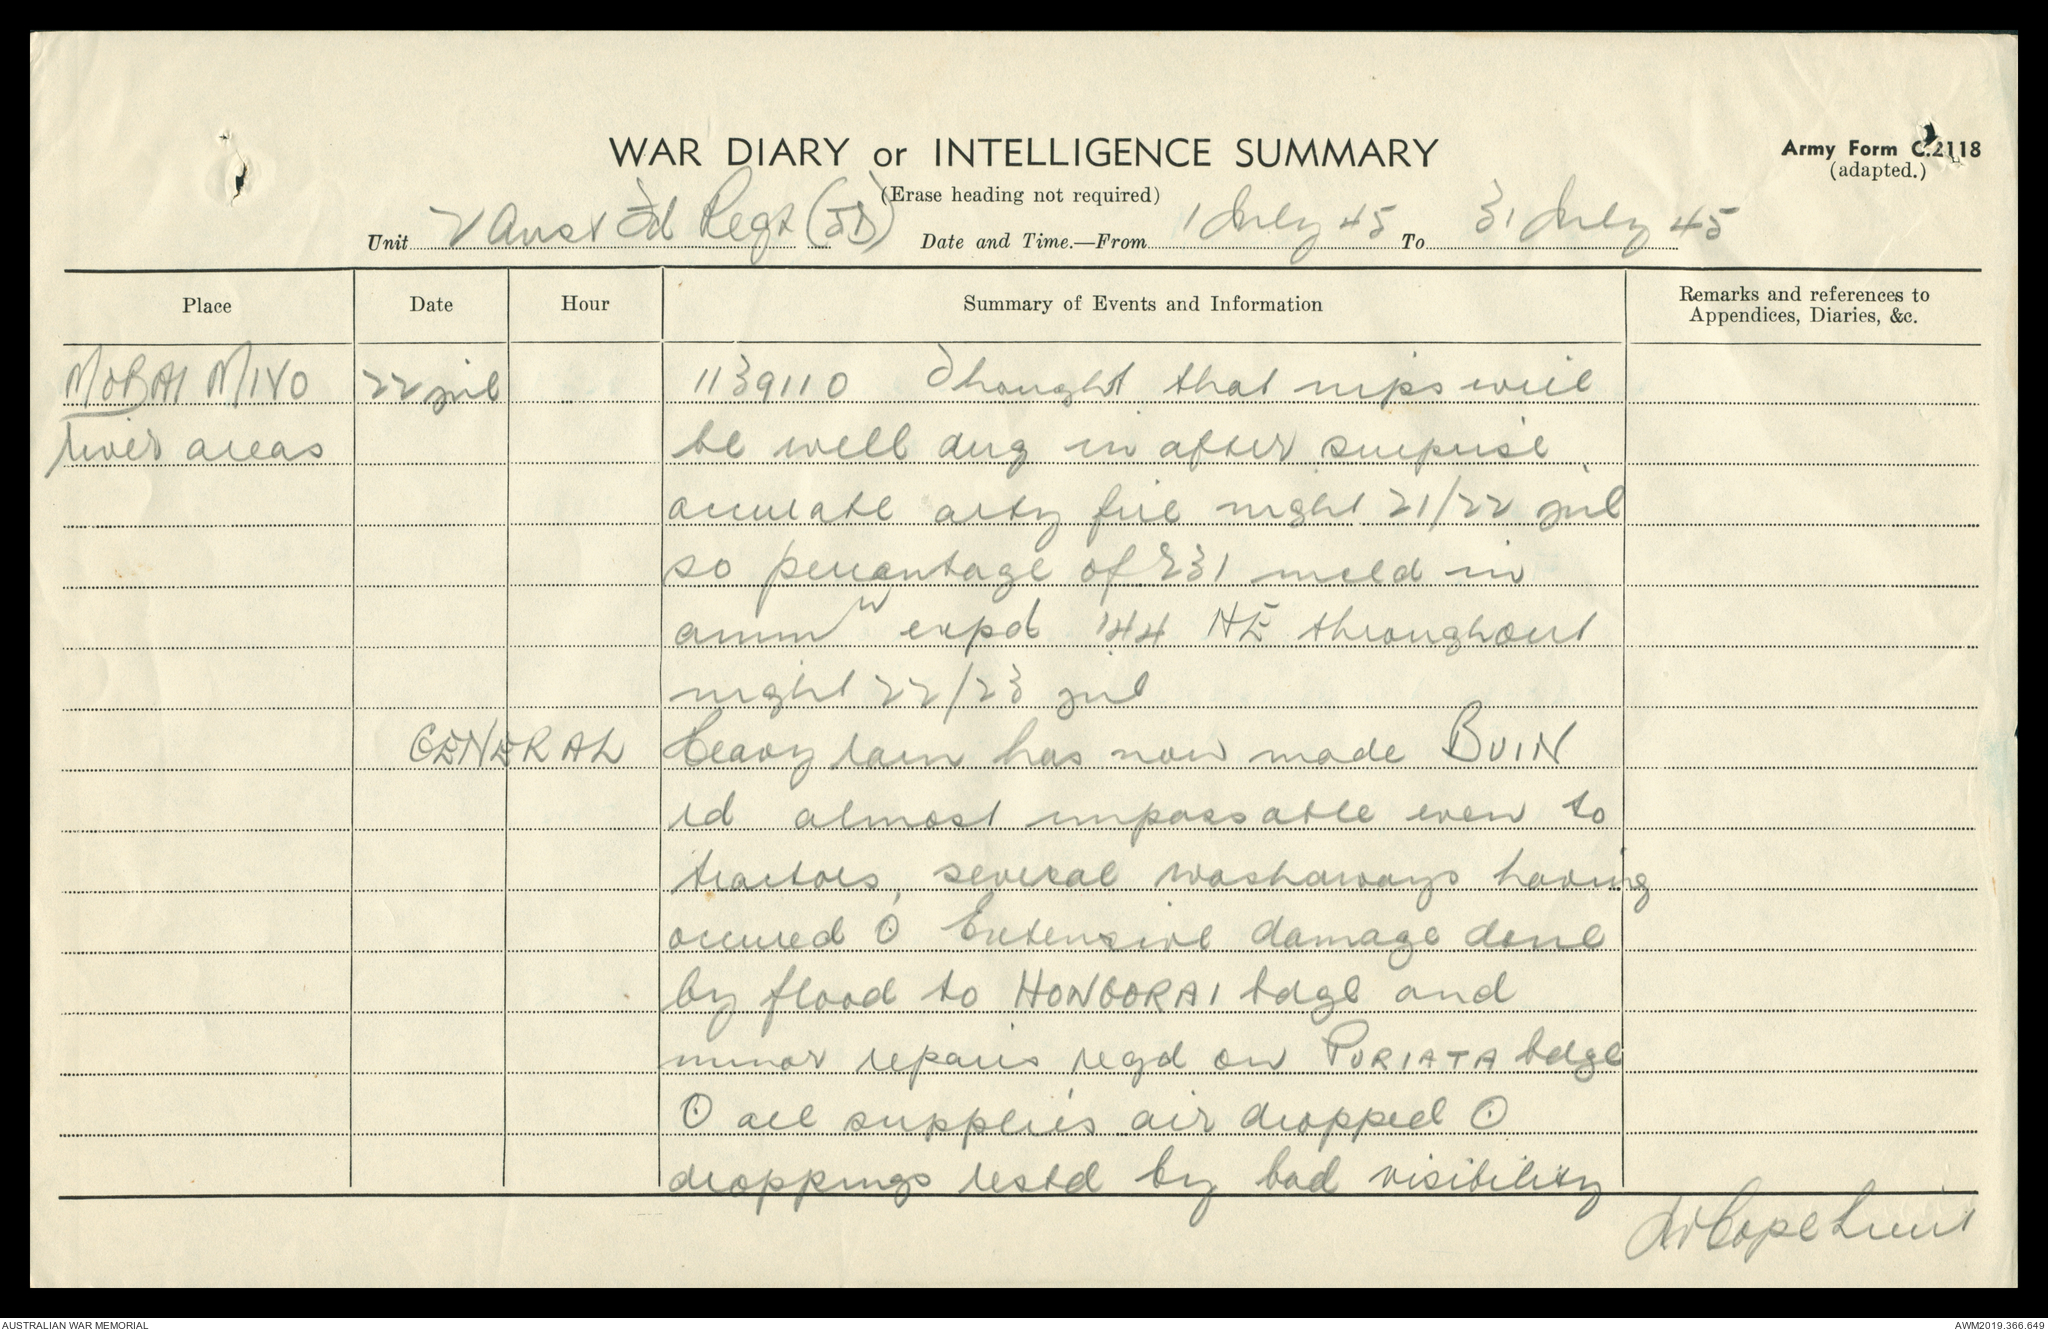 WAR DIARY or INTELLIGENCE SUMMARY
Army Form C.2118
(adapted.)
(Erase heading not required)
Unit 2 Aust Fd Regt (JB) Date and Time.—From 1 July 45 To 31 July 45
Place Date Hour Summary of Events and Information Remarks and references to Appendices, Diaries, &c.
MOBAI MIVO 22 jul 1139110 Thought that nips will
river areas be well dug in after surprise
accurate arty fire night 21/22 jul
so percentage of 231 incld in
ammn expd 144 HE throughout
night 22/23 jul
GENERAL Heavy rain has now made BUIN
rd almost impassable even to
tractors, several washaways having
occured ⊙ Extensive damage done
by flood to HONGORAI bdge and
minor repairs reqd on PURIATA bdge
⊙ all supplies air dropped ⊙
droppings restd by bad visibility
Cope Lieut
AUSTRALIAN WAR MEMORIAL
AWM2019.366.649